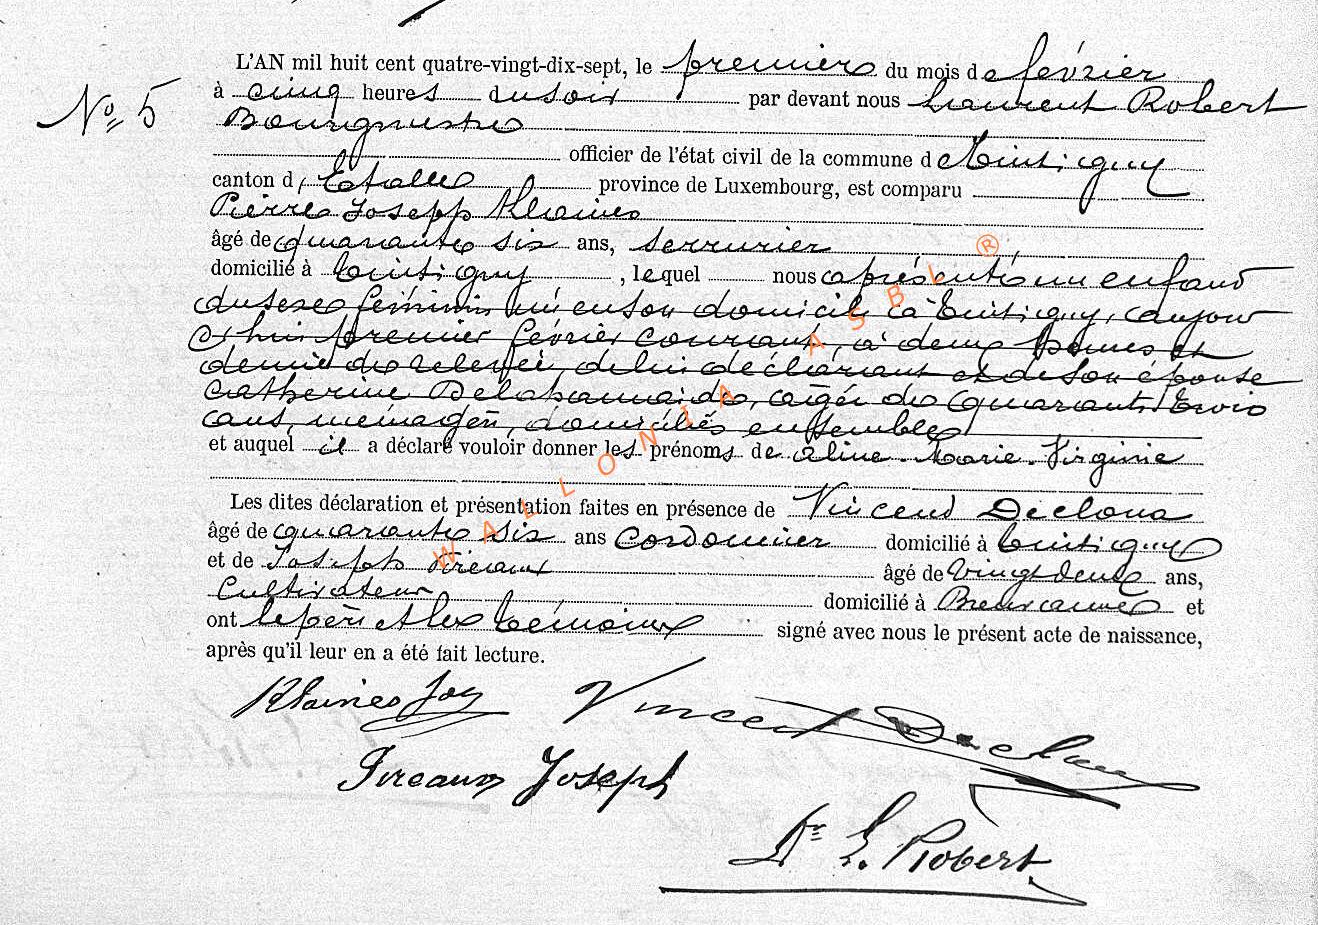 L'AN mil huit cent quatre-vingt-dix-sept, le premier du mois de février
No 5
à cinq heures du soir par devant nous Laurent Robert
Bourgmestre
officier de l'état civil de la commune de Tintigny
canton d'Etalle province de Luxembourg, est comparu
Pierre Joseph
âgé de quarante six ans, serrurier
domicilié à Tintigny, lequel nous a présenté un enfant
du sexe féminin né en son domicile à Tintigny, aujour
d'hui premier février courant, à deux heures et
demie de relevée, de lui déclarant et de son épouse
Catherine, âgée de quarante trois
ans, ménagère, domiciliés ensemble
et auquel il a déclaré vouloir donner les prénoms de Aline Marie Virginie
Les dites déclaration et présentation faites en présence de Vincent
âgé de quarante six ans Cordonnier domicilié à Tintigny
et de Joseph âgé de vingt deux ans,
Cultivateur domicilié à et
ont le père et les témoins signé avec nous le présent acte de naissance,
après qu'il leur en a été fait lecture.
Vincent
Joseph
Dr L. Robert
WALLONIA ASBL ®